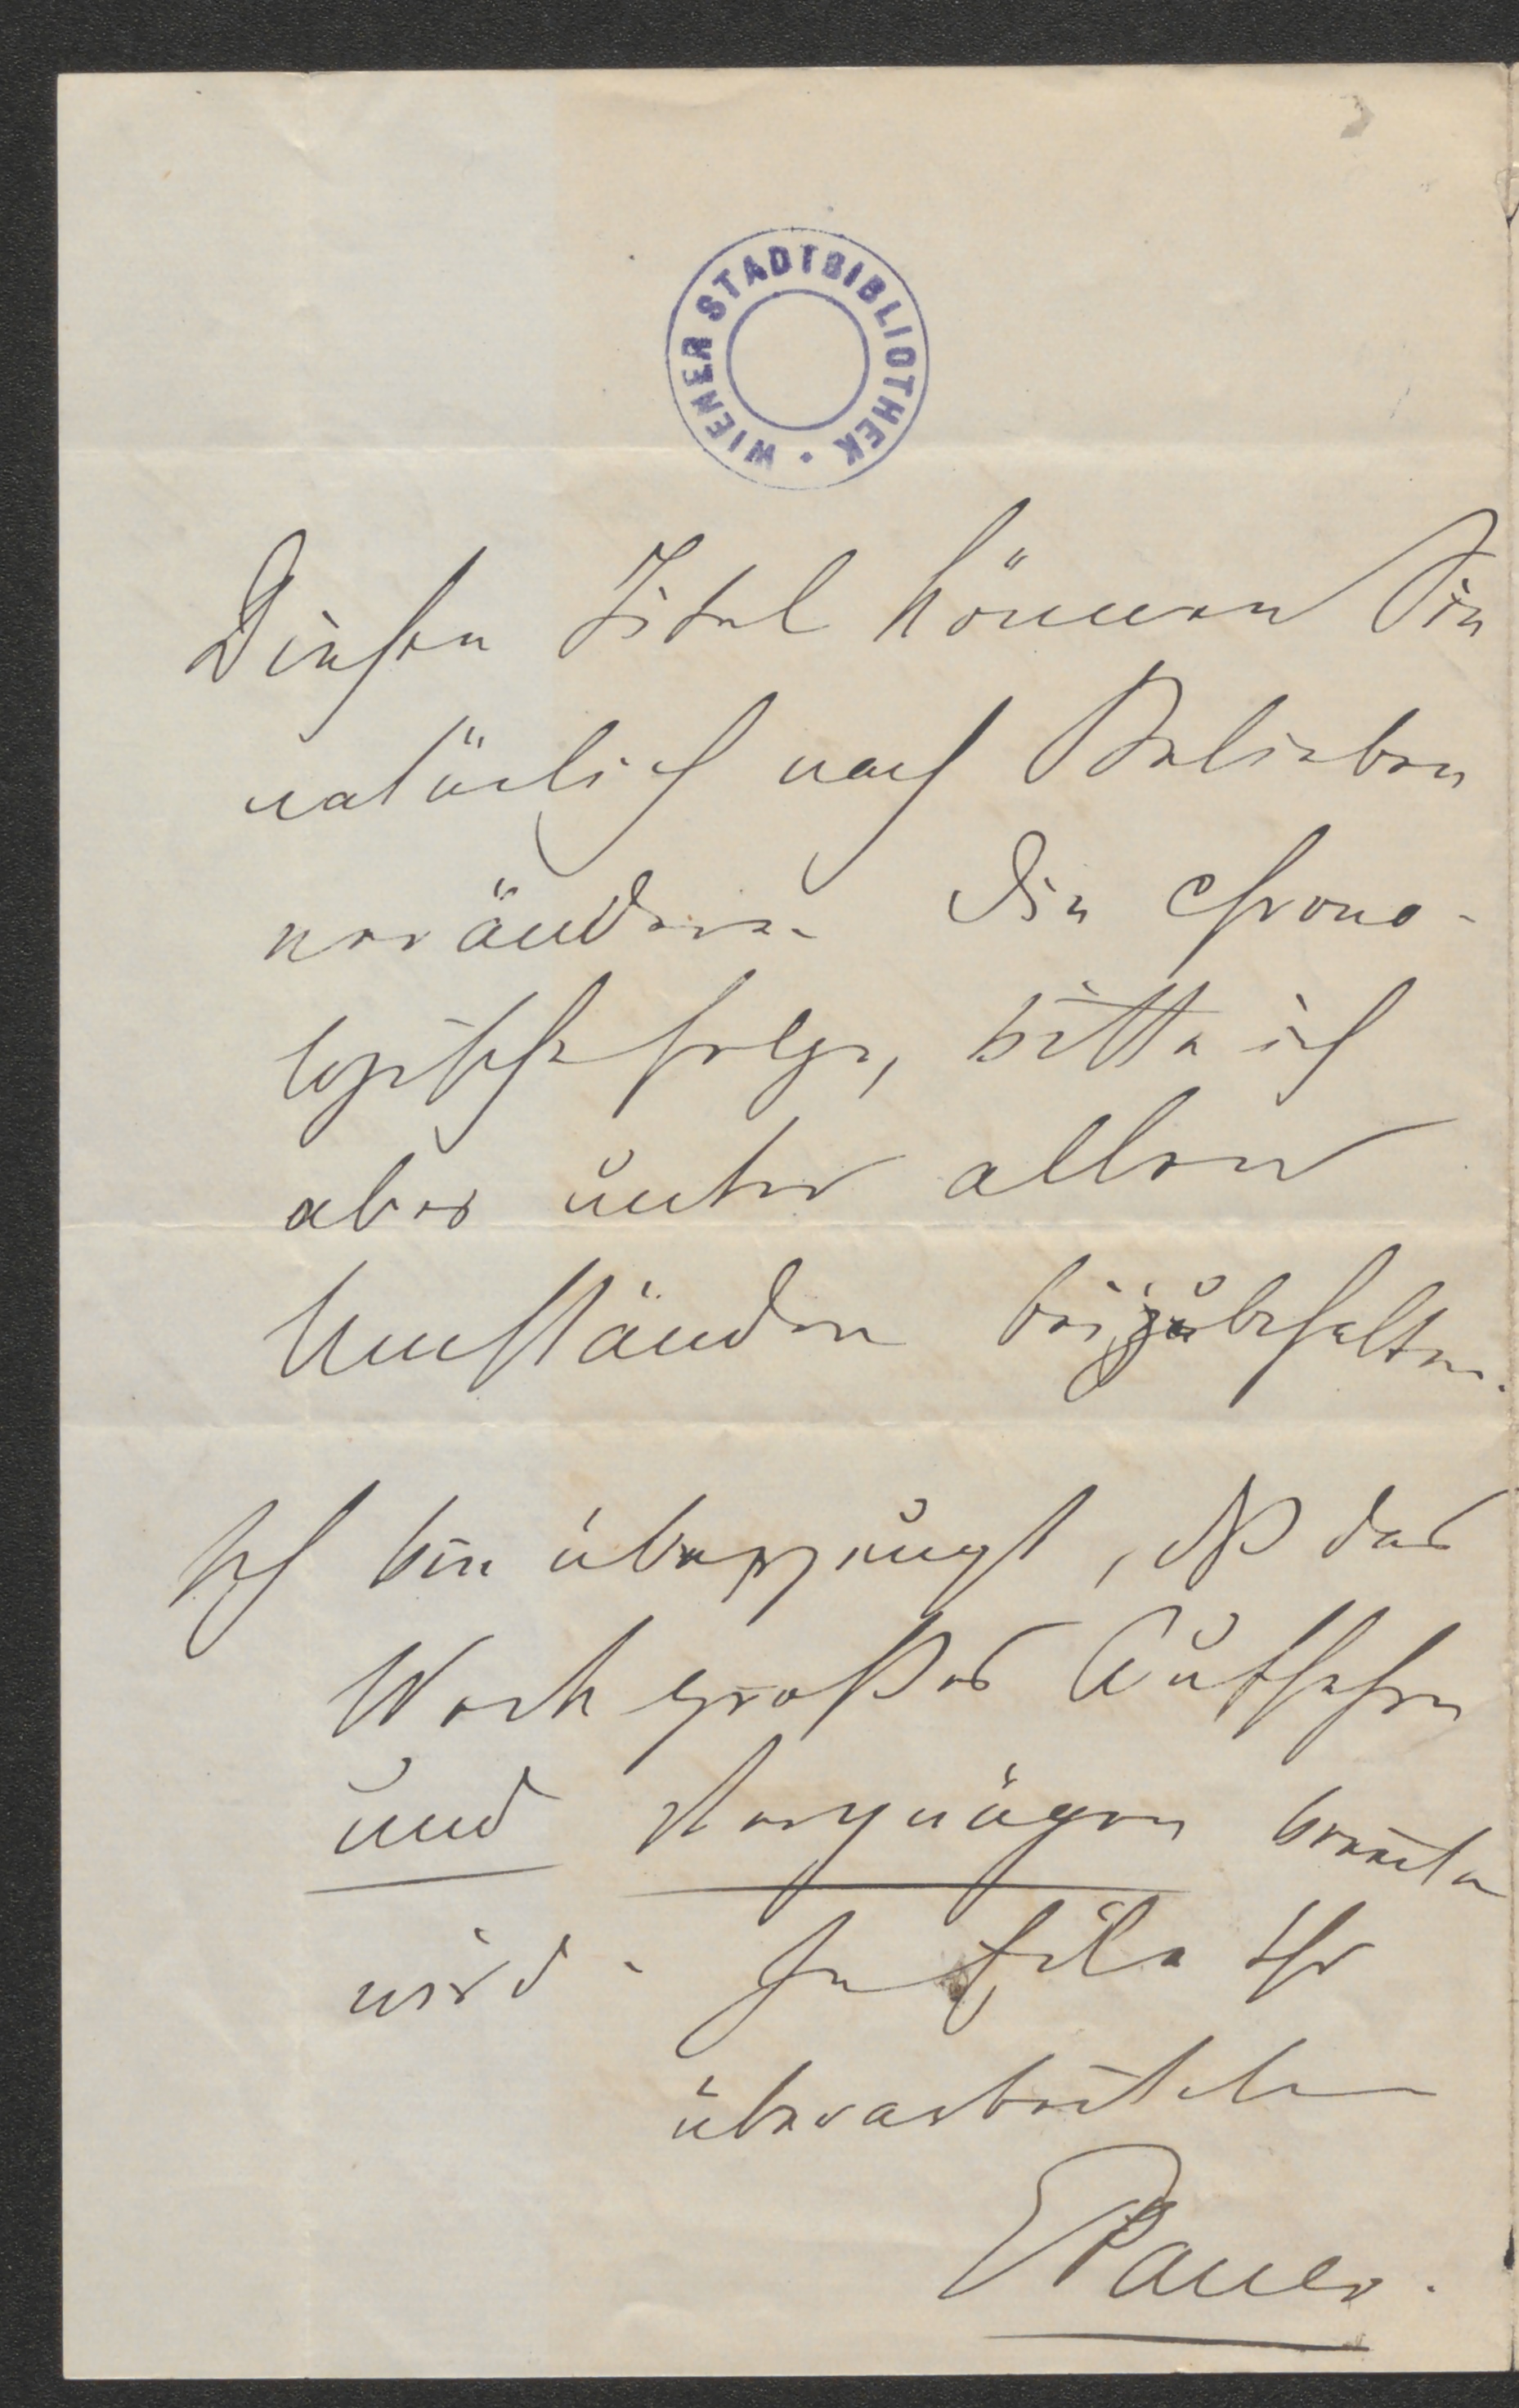 WIENER STADTBIBLIOTHEK
Diesen Titel können Sie
natürlich nach Belieben
verändern. Die chrono-
logische Folge, bitte ich
aber unter allen
Umständen beizubehalten.
Ich bin überzeugt, dß das
Werk großes Aufsehen
und Vergnügen bereiten
wird. In Eile Ihr
überarbeiteter
EPauer.